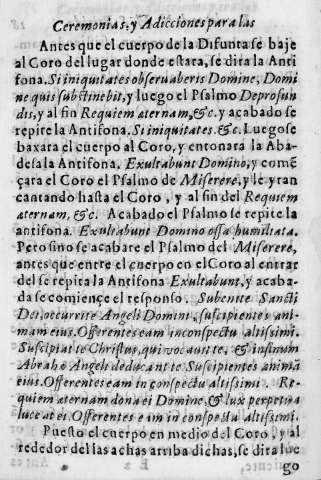 Ceremonias, y Adicciones para las
Antes que el cuerpo de la Difunta se baje
al Coro del lugar donde estara, se dira la Anti
fona. Si iniquitates observaberis Domine, Domi
ne quis substinebit, y luego el Psalmo Deprofun
dis, y al fin Requiem aternam, &c. y acabado se
repite la Antifona. Si iniquitates. &c. Luego se
baxara el cuerpo al Coro, y entonara la Aba-
desa la Antifona. Exultabunt Domino, y comẽ
çara el Coro el Psalmo de Miserere, y le yran
cantando hasta el Coro, y al fin del Requiem
aternam, &c. Acabado el Psalmo se repite la
antifona. Exultabunt Domino ossa humiliata.
Pero sino se acabare el Psalmo del Miserere,
antes que entre el cuerpo en el Coro al entrar
del se repita la Antifona Exultabunt, y acaba-
da se comiençe el responso. Subenite Sancti
Dei, occurrite Angeli Domini, suscipientes ani-
mam eius. Offerentes eam in conspectu altissimi.
Suscipiat te Christus, qui vocavit te, & insinum
Abrahæ Angeli deducant te Suscipientes animã
eius. Offerentes eam in conspectu altissimi. Re-
quiem aternam dona ei Domine, & lux perpetua
luceat ei. Offerentes eam in conspectu altissimi.
Puesto el cuerpo en medio del Coro, y al
rededor del las achas arriba dichas, se dira lue
go